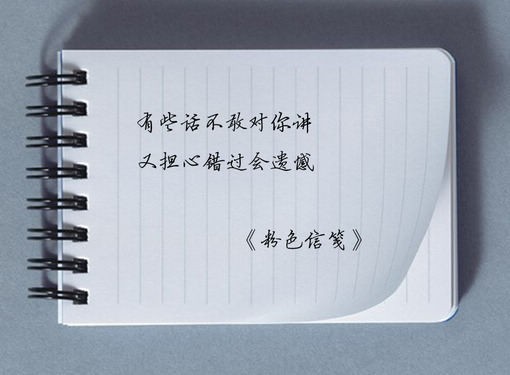 有些话不敢对你讲
又担心错过会遗憾
《粉色信笺》